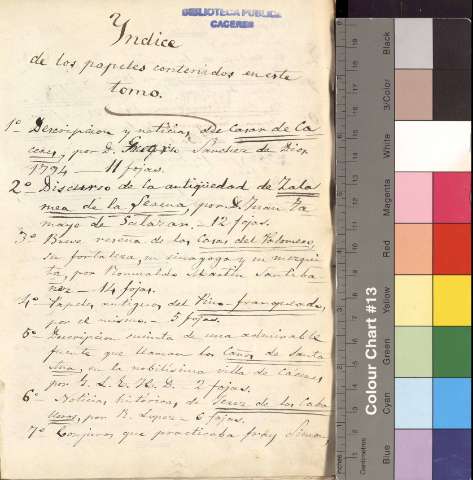 BIBLIOTECA PUBLICA
CACERES
Yndice
de los papeles contenidos en este
tomo.
1º Descripcion y noticias del Casar de Ca
ceres, por D. Gregorio Sanchez de Dios
1794 — 11 fojas.
2º Discurso de la antigüedad de Zala
mea de la Serena por D. Juan Ta
mayo de Salazar. — 12 fojas.
3º Breve reseña de las Casas del Palomero,
su fortaleza, su sinagoga y su mezqui
ta, por Romualdo Martin Santiba
ñez — 14 fojas.
4º Papeles antiguos del Pino-franqueado,
por el mismo — 5 fojas.
5º Descripcion sucinta de una admirable
fuente que llaman los Caños de Santa
Ana, en la nobilisima villa de Cáceres,
por G. L. E. 2 fojas.
6º Noticias históricas de Jerez de los Caba
lleros, por R. Lopez — 6 fojas.
7º Conjuros que practicaba fray Simon,
Colour Chart #13
Blue
Cyan
Green
Yellow
Red
Magenta
White
3/Color
Black
Centimetres